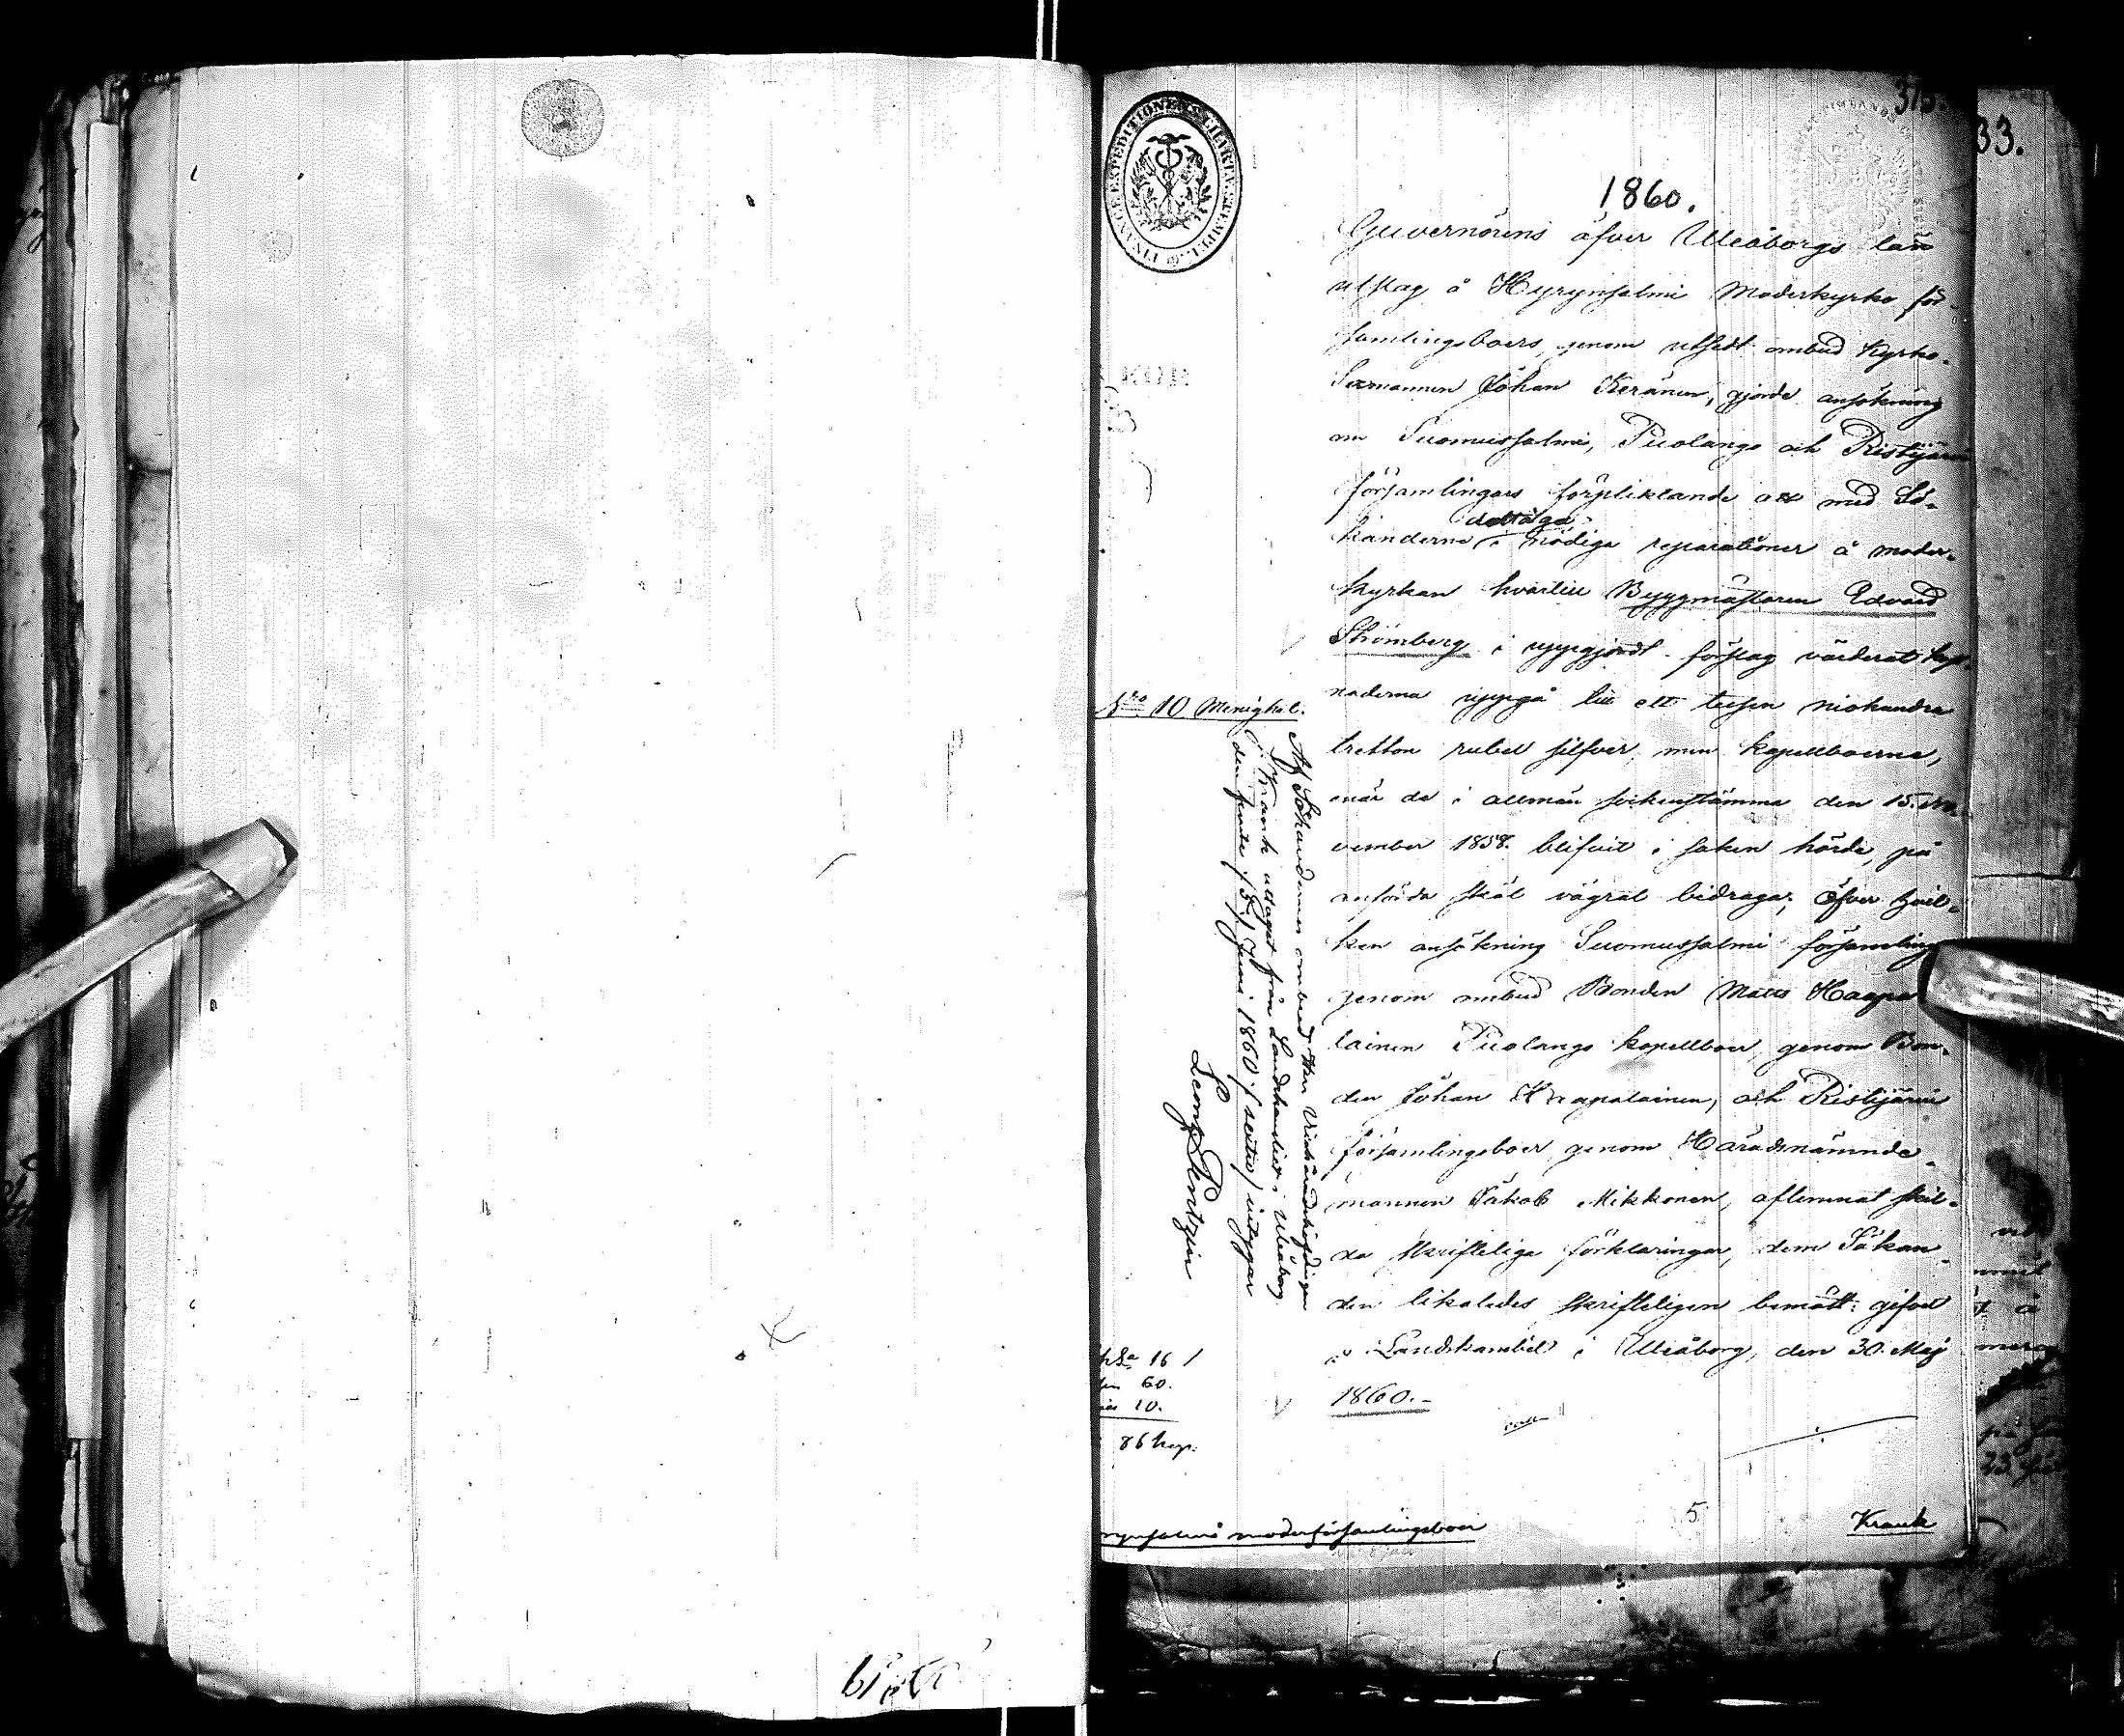 33.
1860.
FINANCE EXPEDITIONENS CHARTÆ STEMPEL
Guvernörens öfver Uleåborgs län
utslag å Hyrynsalmi Moderkyrko för-
samlingsboers, genom utsedt ombud Kyrko-
Sexmannen Johan Keränen, gjorde ansökning
om Suomussalmi, Puolango och Ristijärvi
församlingars förpliktande att med Sö-
kanderne deltaga i nödiga reparationer å moder-
kyrkan hvartill Byggmästaren Edvard
Strömberg i uppgjordt förslag värderat kost-
naderna uppgå till ett tusen niohundra
tretton rubel silfver, men kapellboerne,
när de i allmän sockenstämma den 15. No-
vember 1858. blifvit i saken hörde, på
anförda skäl vägrat bidraga; öfver hvil-
ken ansökning Suomussalmi församling
genom ombud Bonden Matts Haapa
lainen Puolango kapellboer, genom Bon-
den Johan Haapalainen, och Ristijärvi
församlingsboer genom Häradsnämnde-
mannen Jakob Mikkonen, aflemnat skil-
da skriftliga förklaringar, dem Sökan-
den likaledes skriftligen bemött: gifvet
å Landskansliet i Uleåborg, den 30. Maj
1860.-
Nro 10 Menighet.
Af Sökandernes ombud Herr Vicehäradshöfdingen
Krank uttaget från Landskansliet i Uleåborg
den femte /5/ Juni 1860. / sextio / intygar
16 /
60.
10.
86 kop.
moderförsamlingsboer
5
Krank